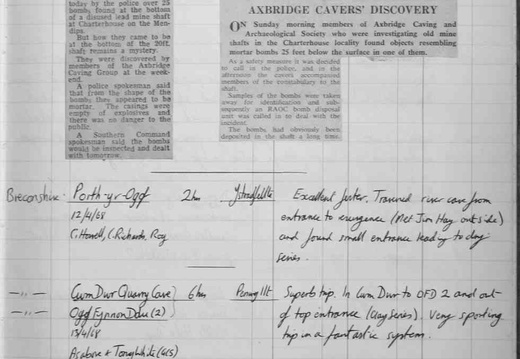 today by the police over 25
bombs, found at the bottom
of a diseased lead mine shaft
at Charterhouse on the Men-
dips.
But how they came to be
at the bottom of the 20ft.
shaft remains a mystery.
They were discovered by
members of the Axbridge
Caving Group at the week-
end.
A police spokesman said
that from the shape of the
bombs they appeared to be
mortar. The casings were
empty of explosives and
there was no danger to the
public.
A Southern Command
spokesman said the bombs
would be inspected and dealt
with tomorrow.
AXBRIDGE CAVERS' DISCOVERY
ON Sunday morning members of Axbridge Caving and
Archæological Society who were investigating old mine
shafts in the Charterhouse locality found objects resembling
mortar bombs 25 feet below the surface in one of them.
As a safety measure it was decided
to call in the police, and in the
afternoon the cavers accompanied
members of the constabulary to the
shaft.
Samples of the bombs were taken
away for identification and sub-
sequently an RAOC bomb disposal
unit was called in to deal with the
incident.
The bombs had obviously been
deposited in the shaft a long time.
Breconshire Porth-yr-Ogof 2hrs Ystradfellte Excellent
12/4/68 river cave from
entrance to (Met Jim Hay outside)
C. Howell, C. Richards, Roy and found small entrance leading to
series.
-"- Cwm Dwr Quarry Cave 6hrs Superb trip. In Cwm Dwr to OFD 2 and out
-"- Ogof Ffynnon Ddu (2) of top entrance (Clay Series). Very sporting
13/4/68 trip in a fantastic system.
As above + Tony White